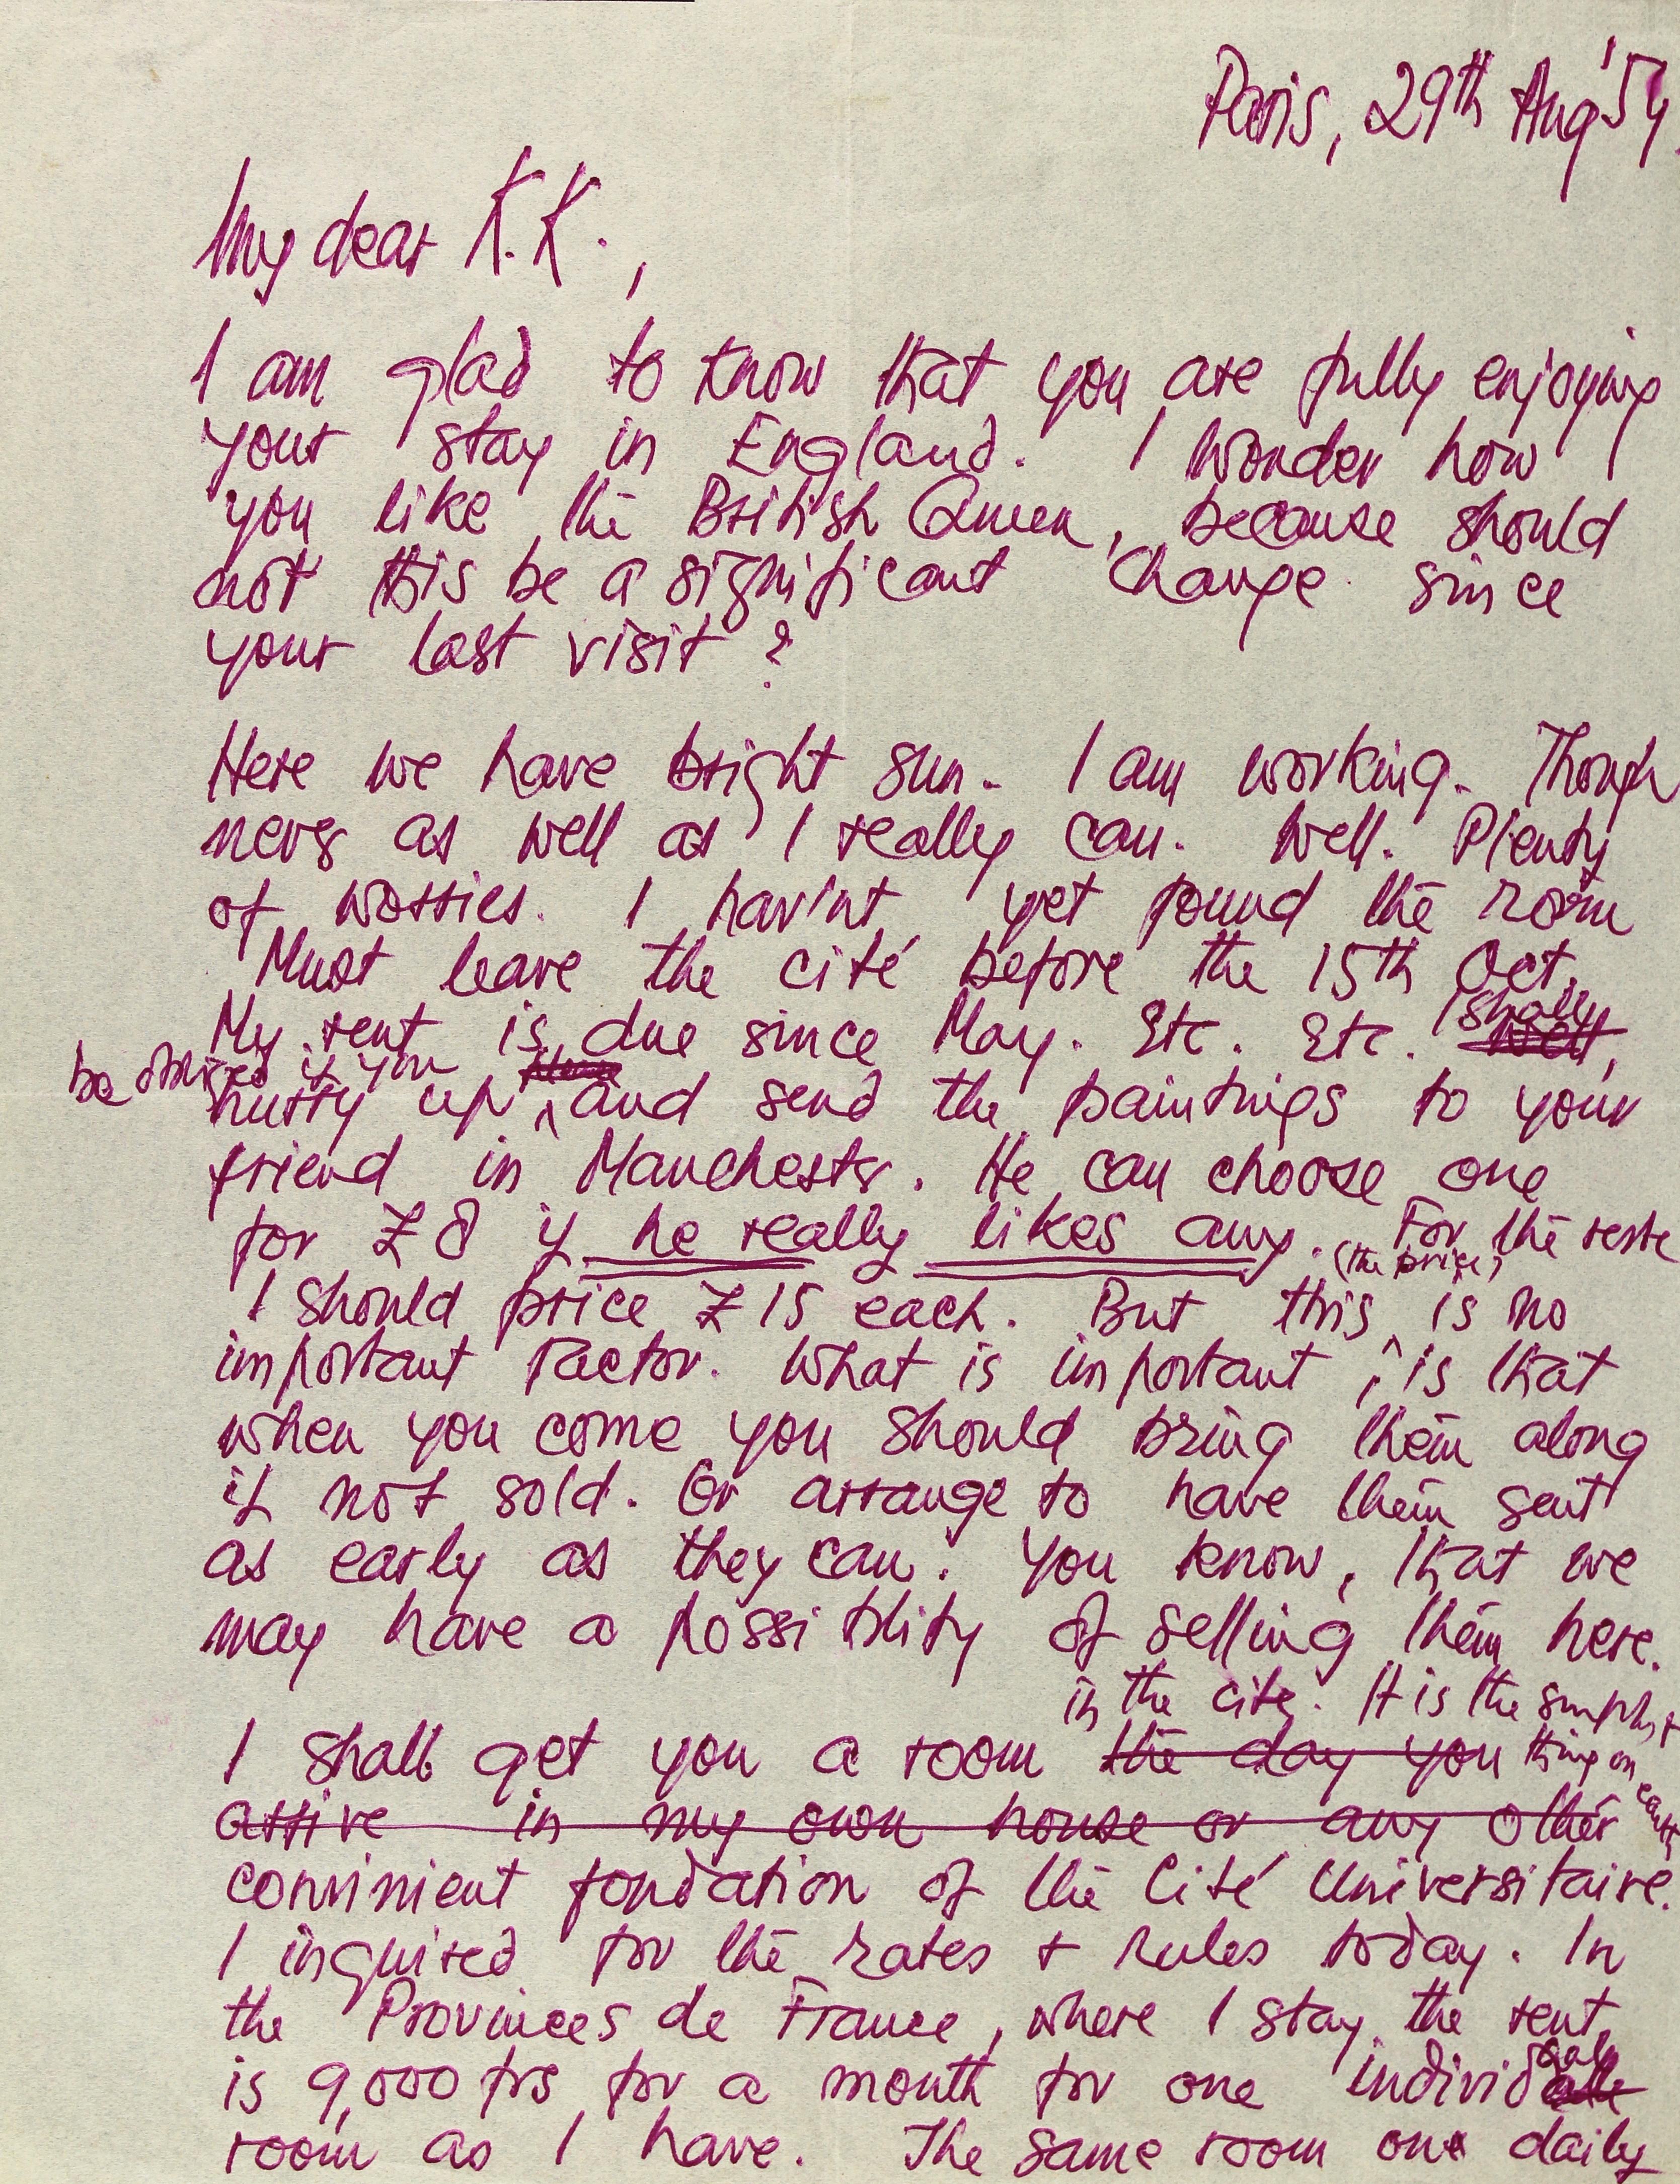 Paris, 29th Aug '54.
My dear K.K.,
I am glad to know that you are fully enjoying
your stay in England. I wonder how
you like the British Queen, because should
not this be a significant change since
your last visit?
Here we have bright sun. I am working. Though
never as well as I really can. Well. Plenty
of worries. I hav'nt yet found the room
Must leave the cité before the 15th Oct.
My rent is due since May. Etc. Etc. I shall
be obliged if you
hurry up and send the paintings to your
friend in Manchester. He can choose one
for £8 if he really likes any. For the reste
I should price £15 each. But this (the price) is no
important factor. What is important, is that
when you come you should bring them along
if not sold. Or arrange to have them sent
as early as they can. You know, that we
may have a possiblity of selling them here.
in the cite. It is the simplest
I shall get you a room the day you thing on earth
arrive in my own house or any other
convinient fondation of the Cité Universitaire.
I inquired for the rates + rules today. In
the Provinces de France, where I stay, the rent
is 9,000 frs for a month for one individual
room as I have. The same room one daily